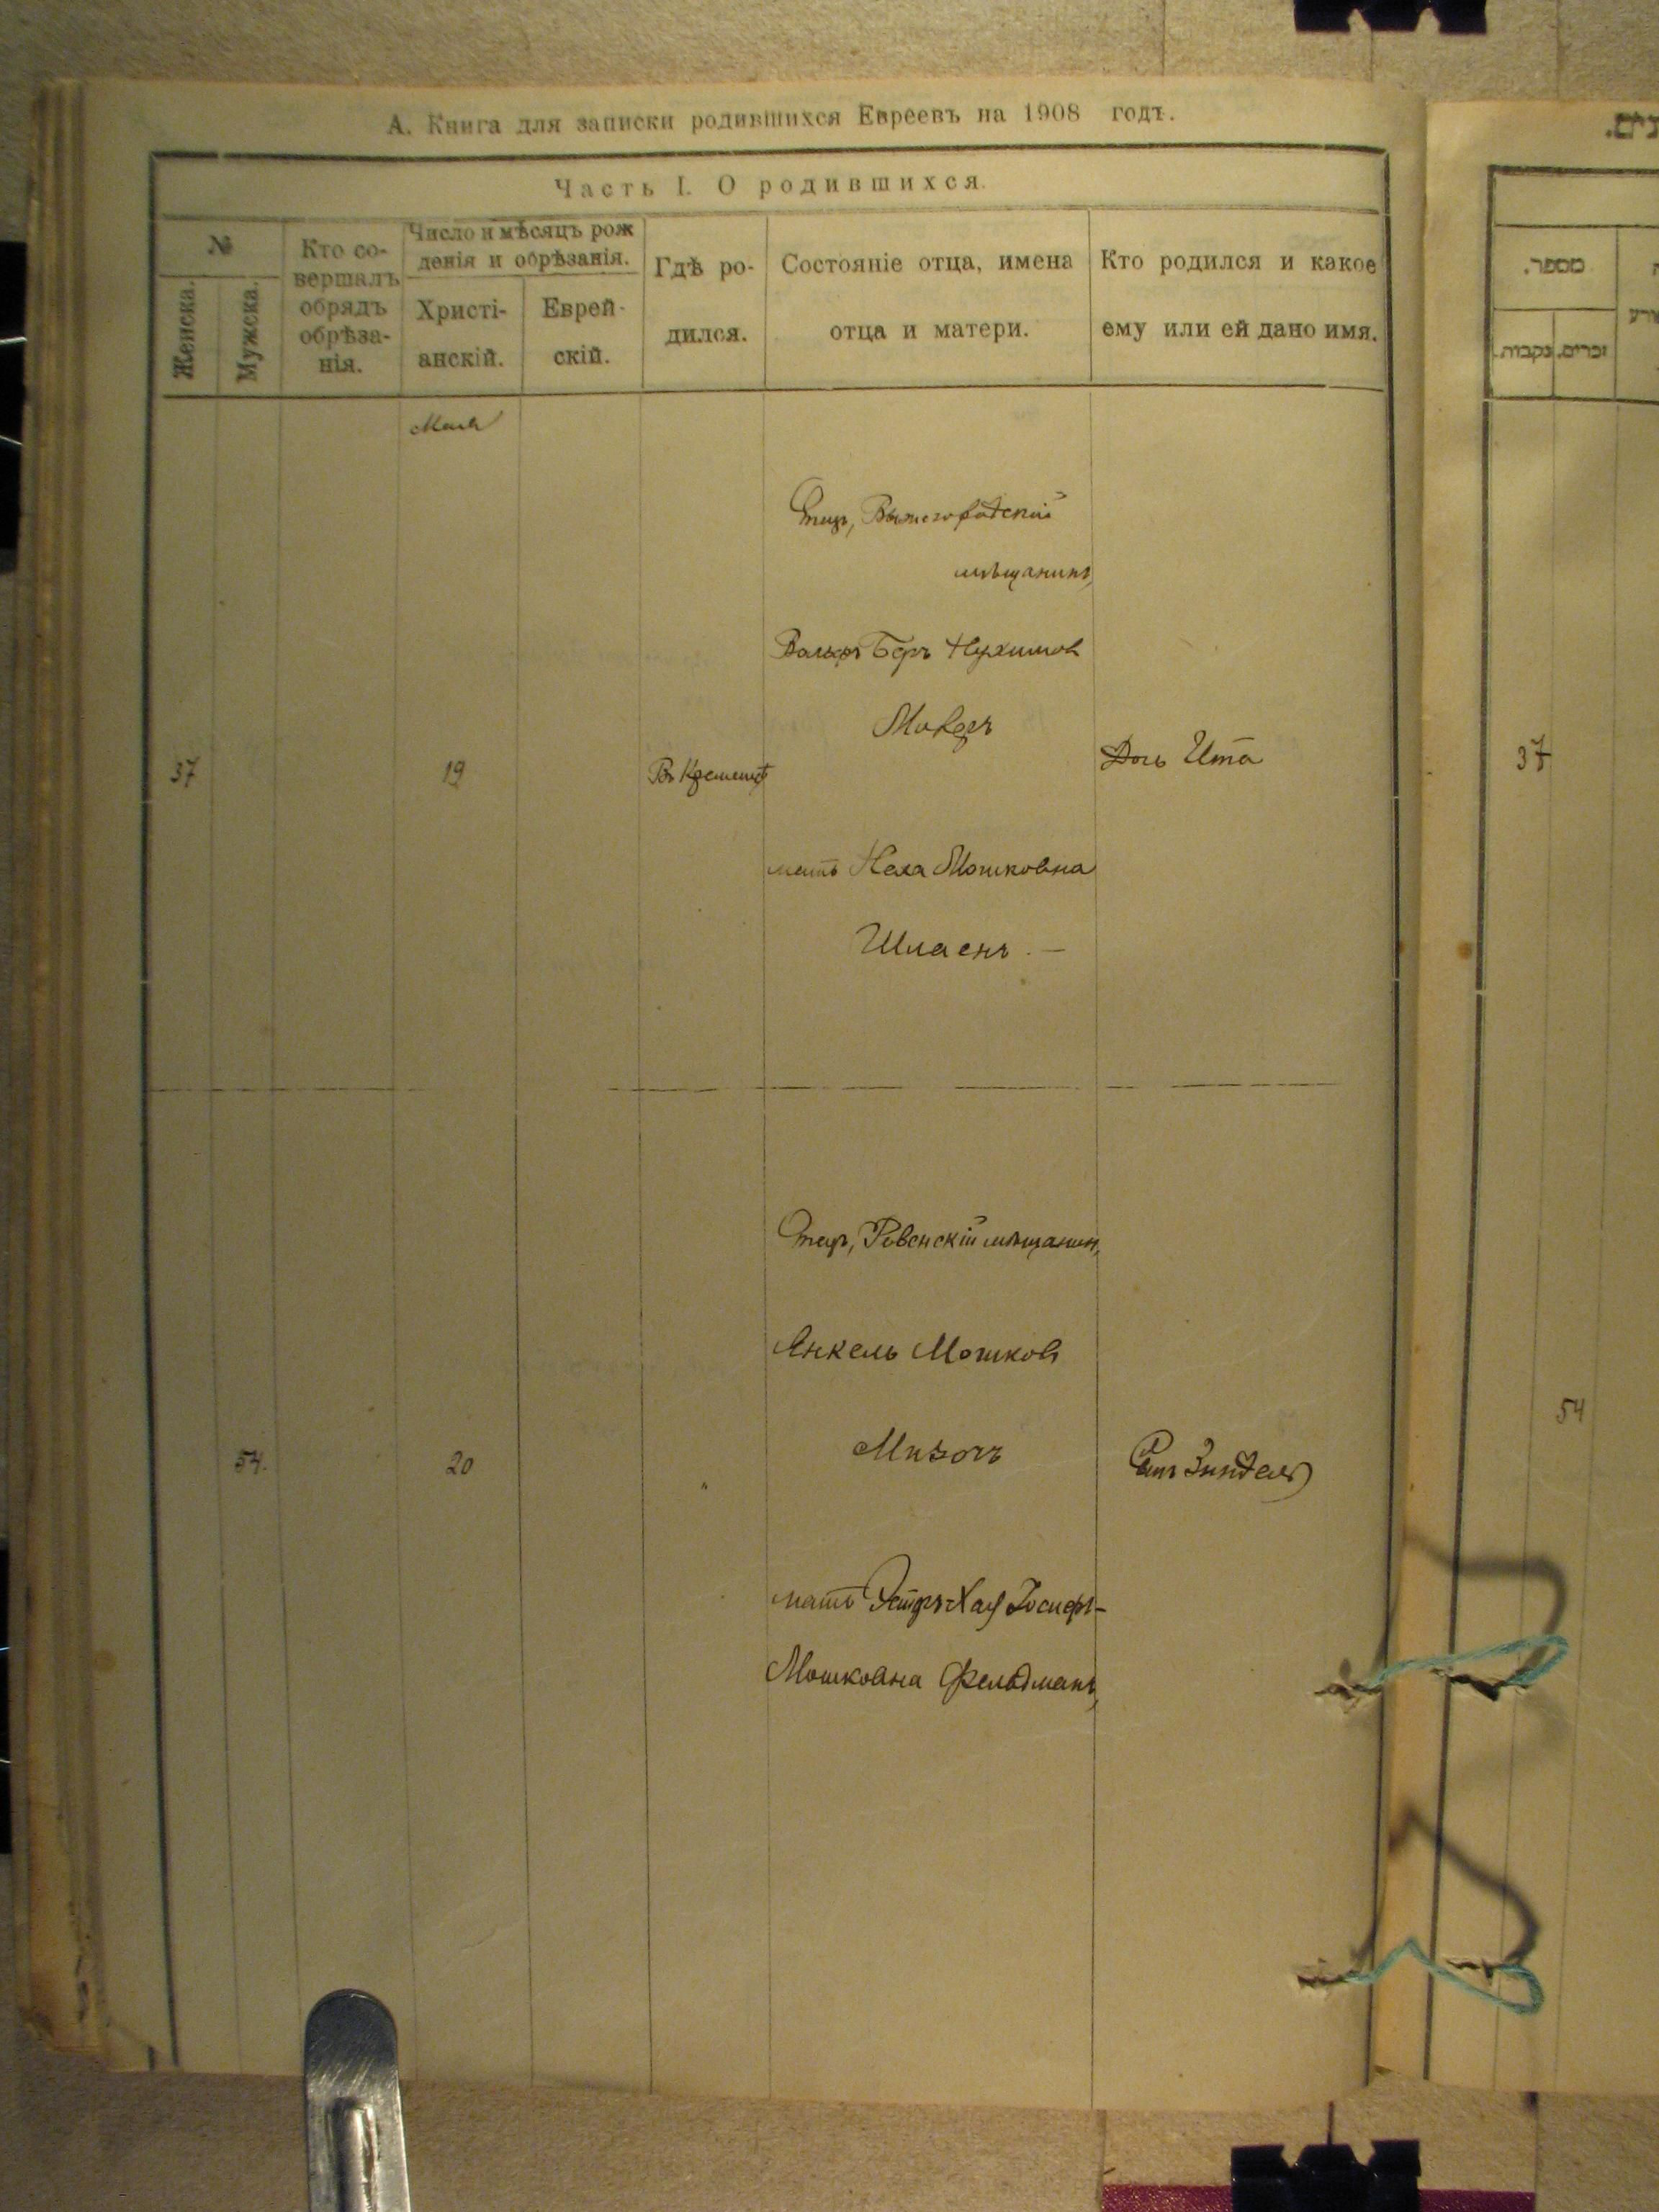 А. Книга для записки родившихся Евреевъ на 1908 годъ.
Часть I. О родившихся.
№
Женска.
Мужска.
Кто со-
вершалъ
обрядъ
обрѣза-
нія.
Число и мѣсяцъ рож
денія и обрѣзанія.
Христі-
анскій.
Еврей-
скій.
Гдѣ ро-
дился.
Состояніе отца, имена
отца и матери.
Кто родился и какое
ему или ей дано имя.
Мая
Отецъ, Вышегородскій
мѣщанинъ,
Вольфъ Беръ Нухимовъ
37
19
Въ Кременцѣ
Дочь Ита
мать Неха Мошковна
Шлаенъ. —
Отецъ, Ровенскій мѣщанинъ,
Янкель Мошковъ
Мизочъ
54.
20
"
Сынъ Зиндель
мать Эстеръ Хая Іосифъ-
Мошковна Фельдманъ,
מספר.
זכרים.
נקבות.
37
54